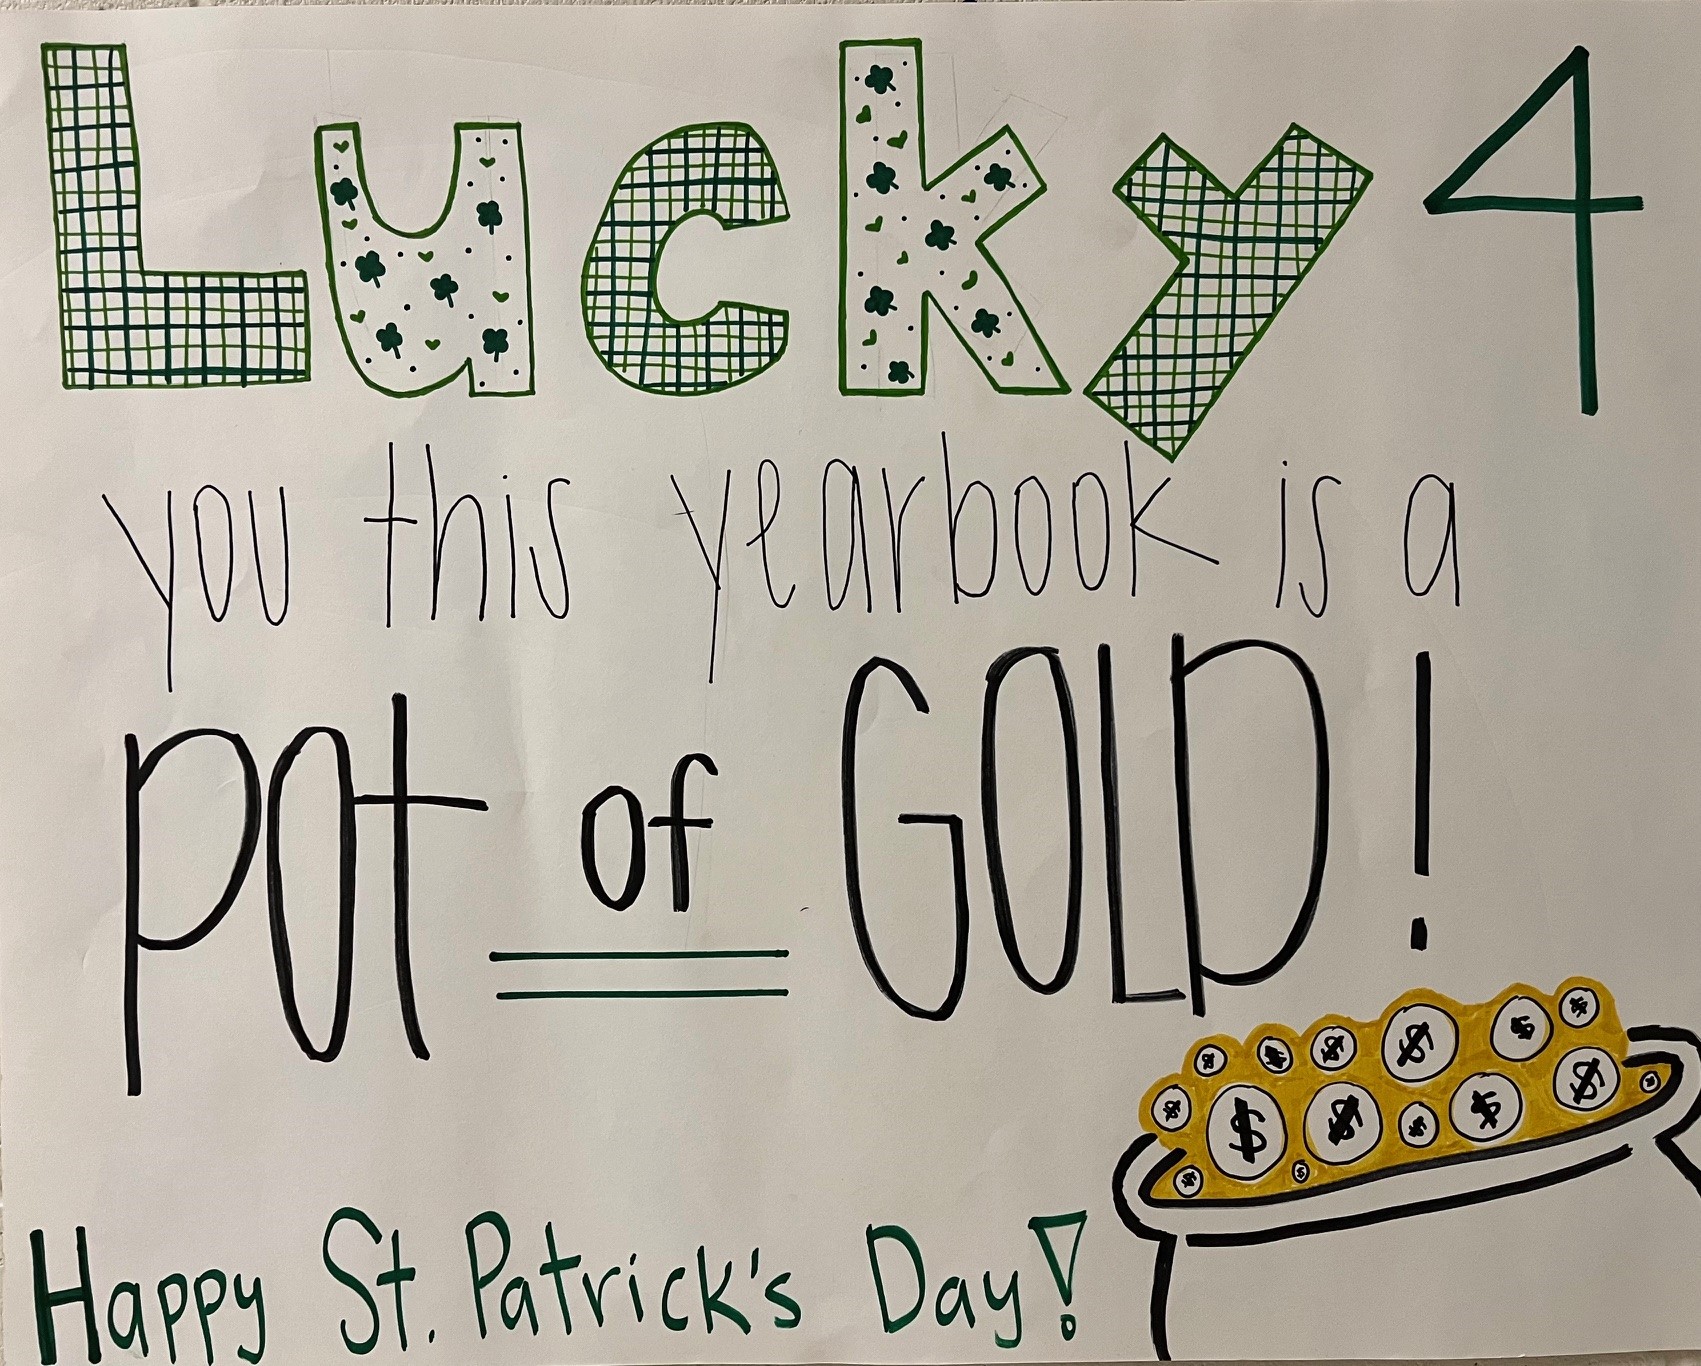 Lucky 4
you this yearbook is a
POt of GOLD!
Happy St. Patrick's Day!
$ $ $ $ $ $ $
$ $ $ $ $ $ $ $
$ $